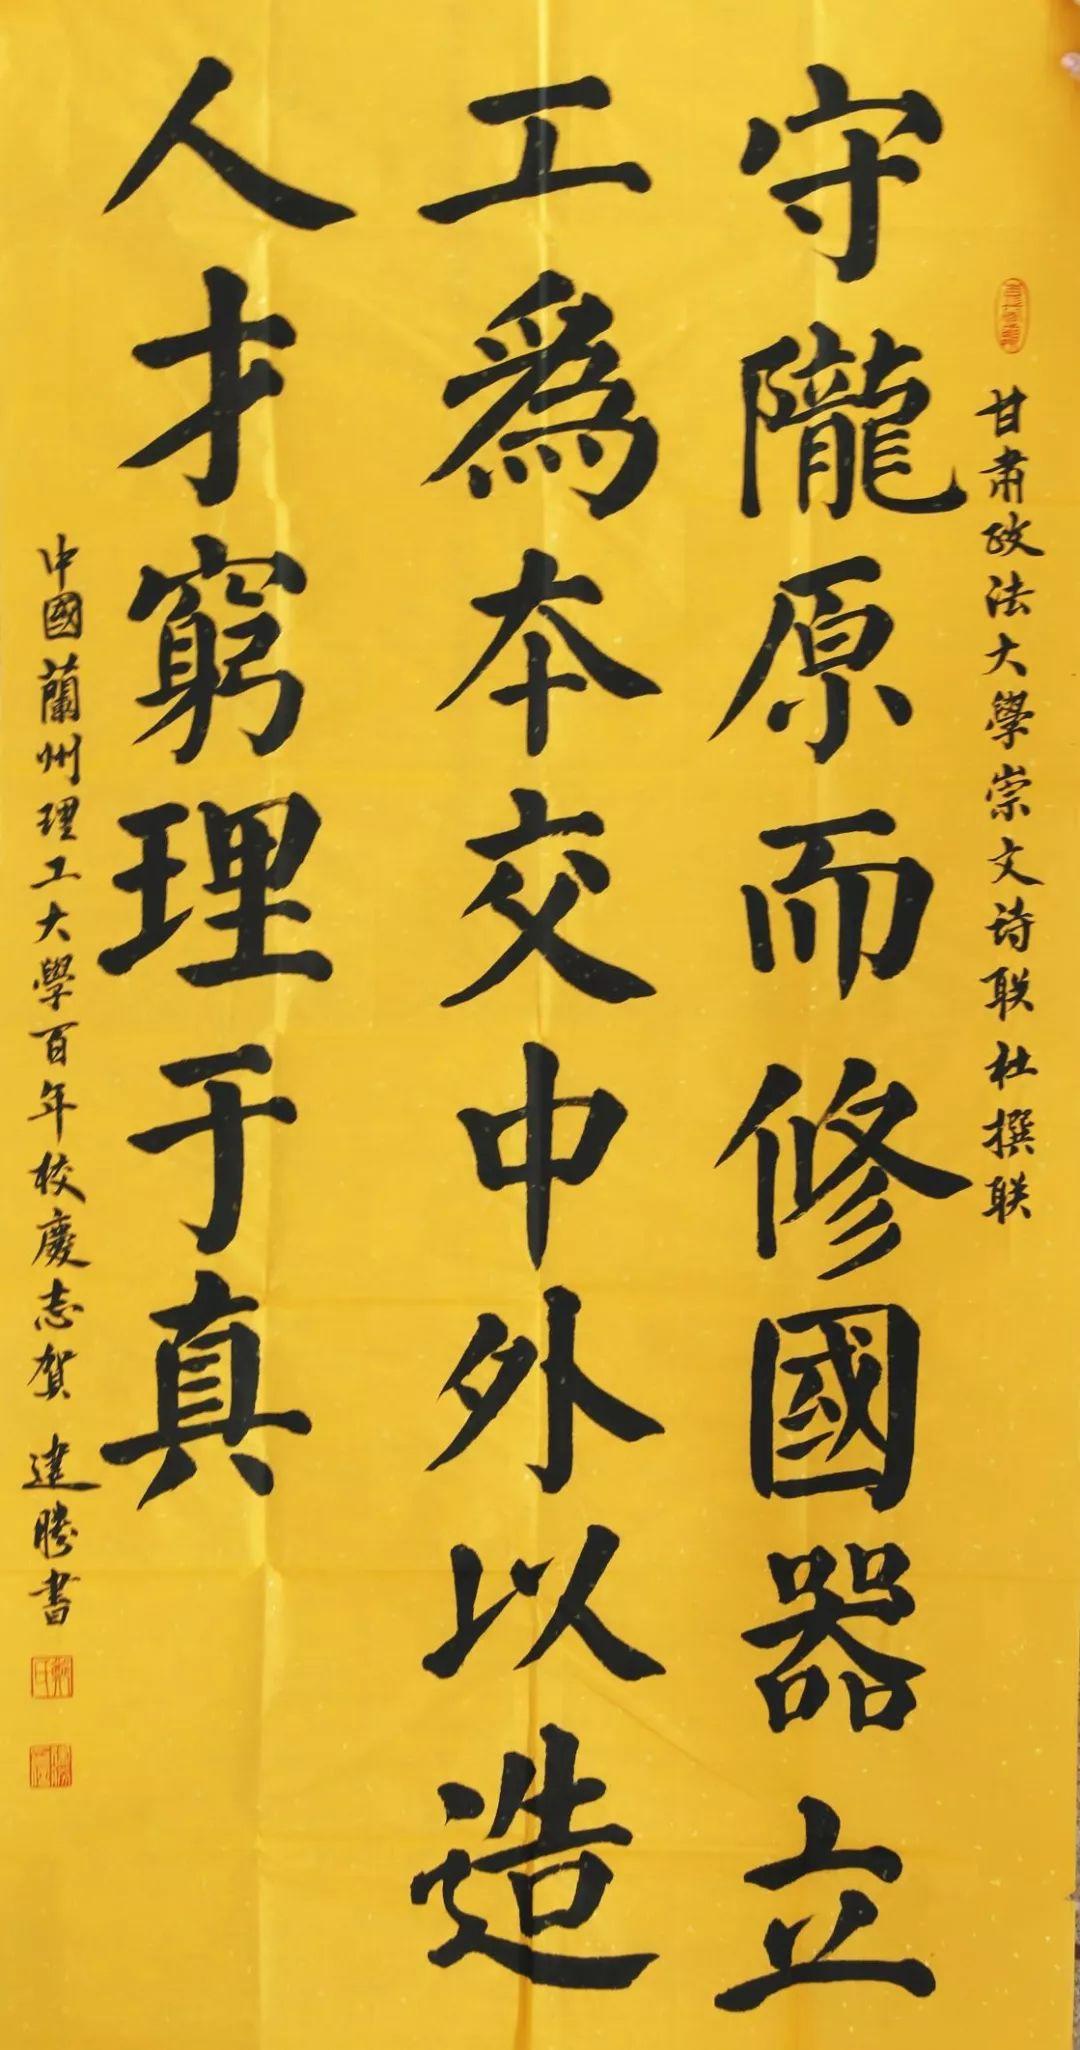 甘肅政法大學崇文诗联杜撰联
守隴原而修國器立
工爲本交中外以造
人才窮理于真
中國蘭州理工大學百年校慶志贺 建勝書